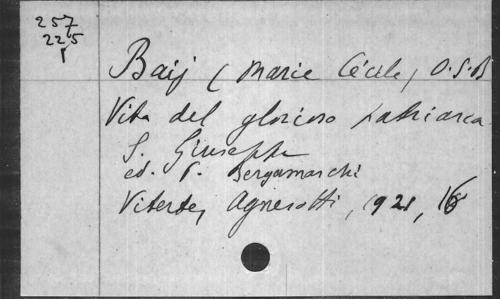 257
225
1
Baij (Marie Cécile) O.S.B
Vita del glorioso patriarca
S. Giuseppe
ed. P. Bergamaschi
Viterbe, Agnesotti, 1921, 16°